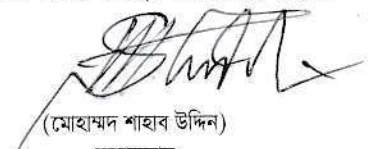 (মোহাম্মদ শাহাব উদ্দিন)